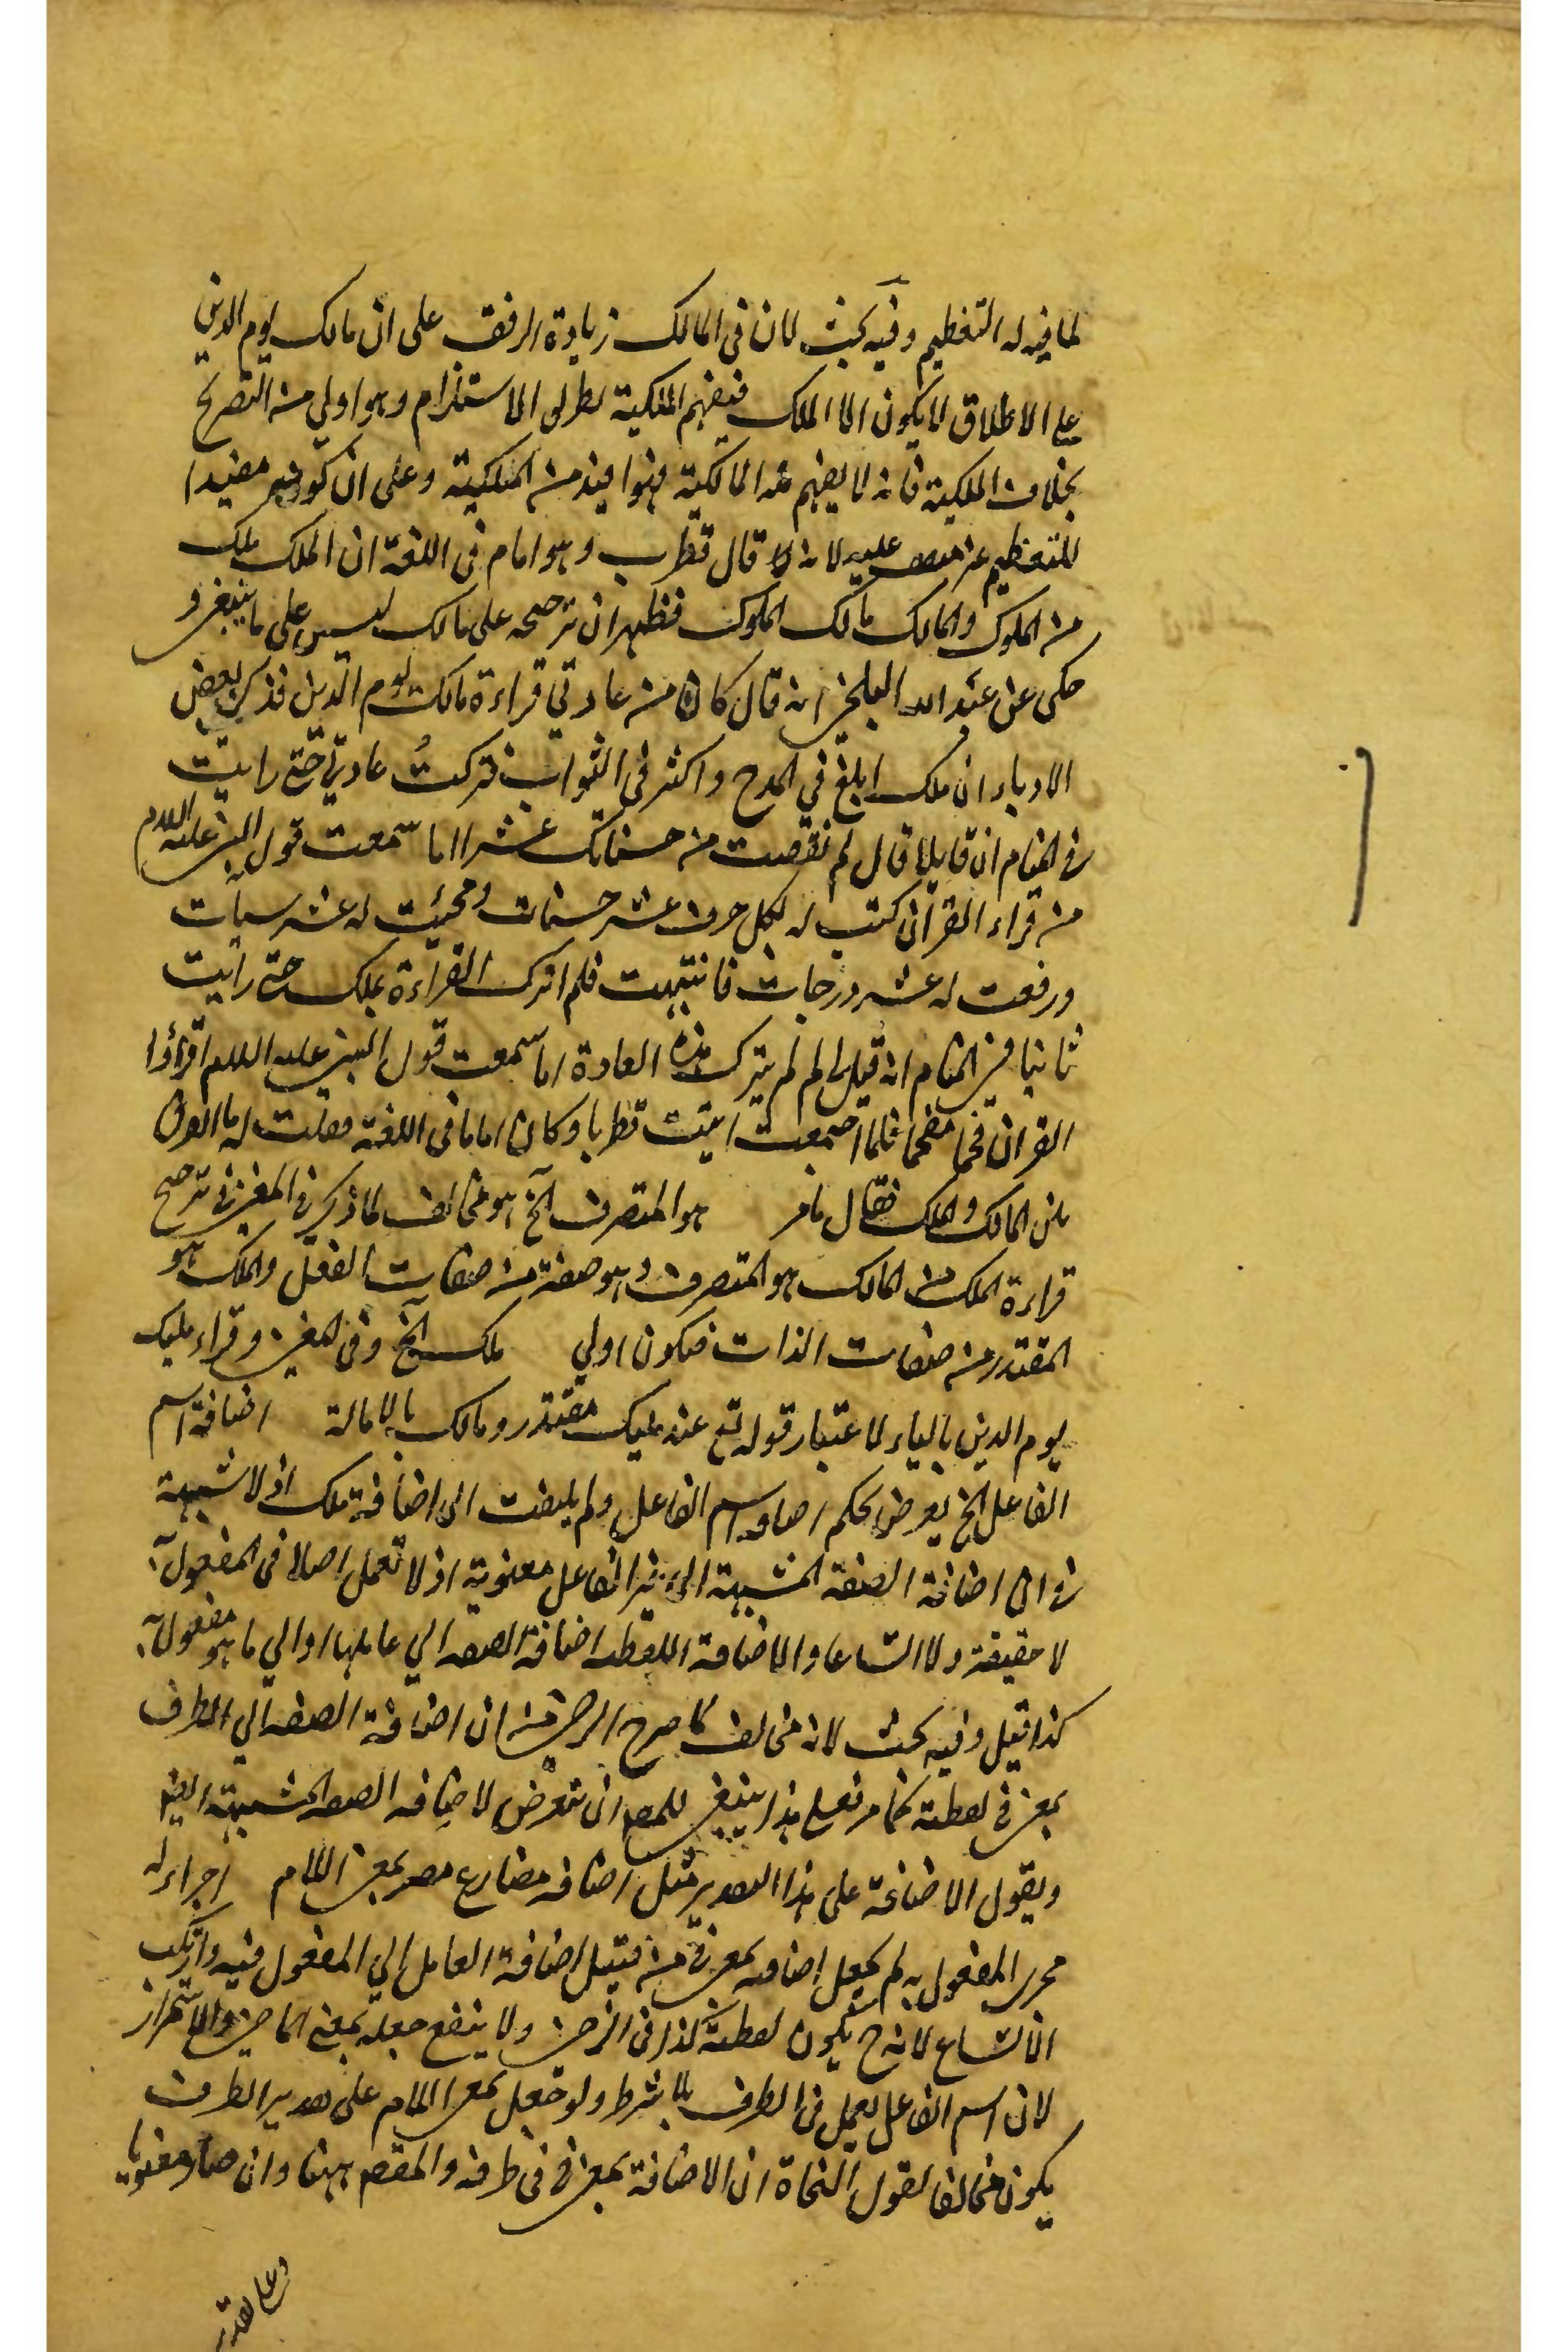 لما فيه له التعظيم وفيه بحث لان في المالك زيادة الرفق على ان مالك يوم الدين
على الاطلاق لا يكون الا الملك فيفهم الملكية بطريق الاستلزام وهو اولى من التصريح
بخلاف الملكية فانه لا يفهم منه المالكية فهو افيد من الملكية وعلى ان كونه مفيدا
للتعظيم غير متفق عليه لانه قال قطرب وهو امام في اللغة ان الملك ملك
من الملوك والمالك مالك الملوك فظهر ان ترجيحه على مالك ليس على ما ينبغي و
حكى عن عبد الله البلخي انه قال كان من عادتي قراءة مالك يوم الدين فذكر بعض
الادباء ان ملك ابلغ في المدح واكثر في الثواب فتركت عادتي حتى رايت
في المنام ان قايلا قال لم نقصت من حسناتك عشرا اما سمعت قول النبي عليه السلام
من قراء القران كتب له بكل حرف عشر حسنات ومحيت له عشر سيات
ورفعت له عشر درجات فانتبهت فلم اترك القراءة بملك حتى رايت
ثانيا في المنام انه قيل لي لم لم يترك هذه العادة اما سمعت قول النبي عليه السلام اقرؤا
القران فخما مفخما فلما اصبحت اتيت قطربا وكان اماما في اللغة فقلت له ما الفرق
بين المالك والملك فقال ما مر هو المتصرف الخ هو مخالف لما ذكر في المغني في ترجيح
قراءة الملك من المالك هو المتصرف وهو صفة من صفات الفعل والملك هو
المقتدر من صفات الذات فيكون اولي ملك الخ وفي المغني وقراء مليك
يوم الدين بالياء لاعتبار قوله تع عند مليك مقتدر ومالك بالامالة اضافة اسم
الفاعل الخ تعرض لحكم اضافة اسم الفاعل ولم يلتفت الى اضافة ملك اذ لا شبهة
في ان اضافة الصفة المشبهة الى غير الفاعل معنوية اذ لا تعمل اصلا في المفعول به
لا حقيقة ولا اتساعا والاضافة اللفظية اضافة الصفة الي عاملها او الي ما هو مفعول به
كذا قيل وفيه بحث لانه مخالف لما صرح الرضي من ان اضافة الصفة الي الظرف
بمعنى في لفظية كما مر فعلى هذا ينبغي للمص ان تعرض لاضافة الصفة المشبهة ايضا
ويقول الاضافة على هذا التقدير مثل اضافة مضارع مصر بمعنى اللام اجراء له
مجرى المفعول به لم يجعل اضافته بمعنى في من قبيل اضافة العامل الي المفعول فيه وارتكب
الاتساع لانه ح يكون لفظية كذا في الرضي ولا ينفع جعله بمعنى الماضي والاستمرار
لان اسم الفاعل يعمل في الظرف بلا شرط ولو جعل بمعنى اللام على تقدير الظرف
يكون مخالفا لقول النحاة ان الاضافة بمعنى في في ظرفه والمقص ههنا وان صار معنويا